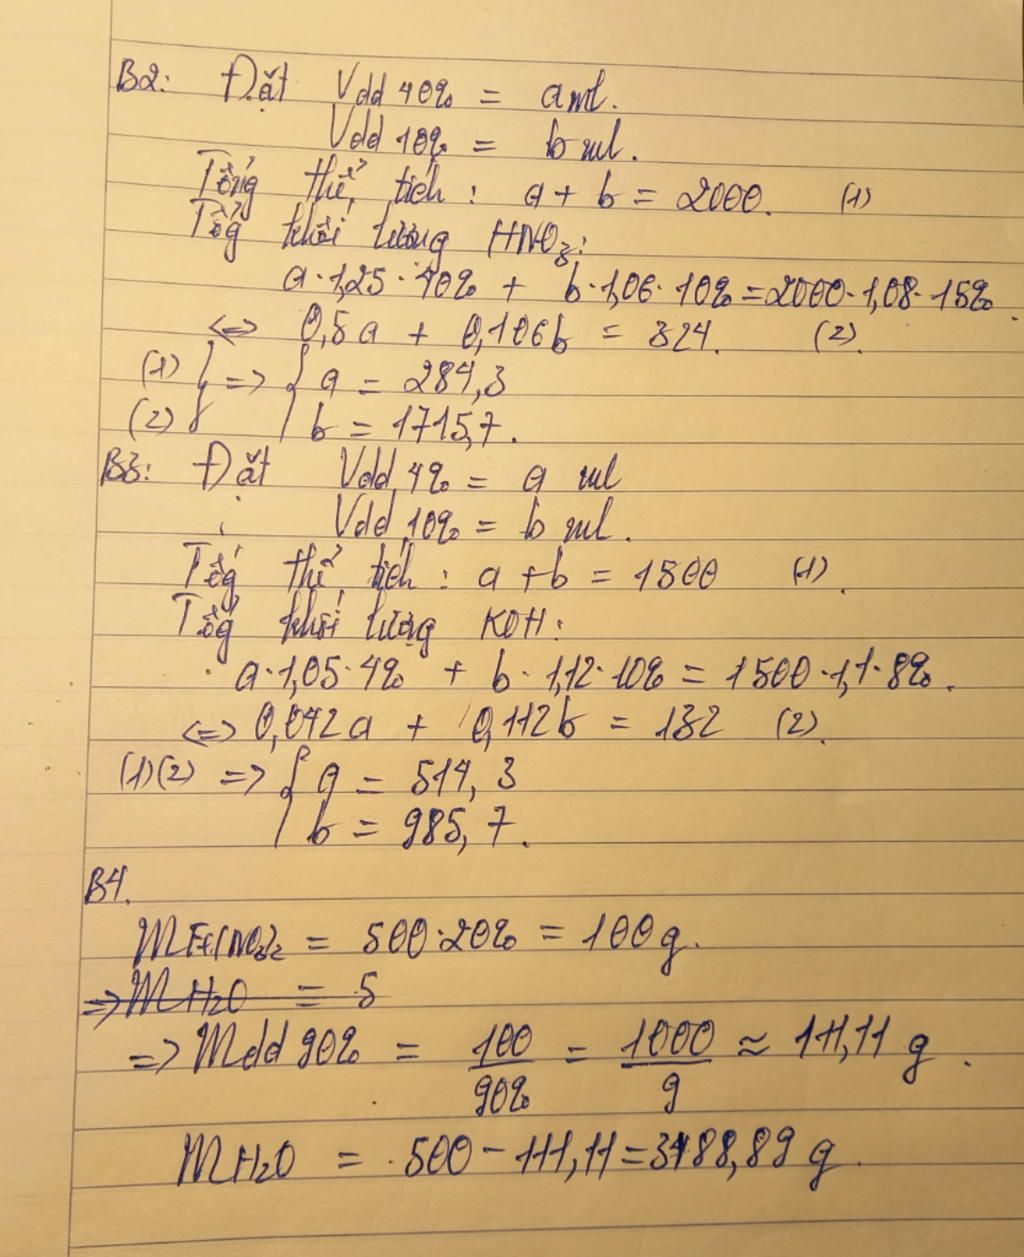 B2: Đặt Vdd 40% = a ml.
Vdd 10% = b ml.
Tổng thể tích : a + b = 2000. (1)
Tổg khối lượng HNO3:
a·1,25·40% + b·1,06·10% = 2000·1,08·15%.
<=> 0,5a + 0,106b = 324. (2).
(1) (2) } => { a = 284,3
b = 1715,7.
B3: Đặt Vdd 4% = a ml
Vdd 10% = b ml.
Tổg thể tích : a + b = 1500 (1).
Tổg khối lượng KOH:
a·1,05·4% + b·1,12·10% = 1500·1,1·8%.
<=> 0,042a + 0,112b = 132 (2).
(1)(2) => { a = 514,3
b = 985,7.
B4.
mFe(NO3)2 = 500·20% = 100g.
=> mH2O = 5
=> mdd 90% = 100/90% = 1000/9 ≈ 111,11 g.
mH2O = 500 - 111,11 = 388,89 g.